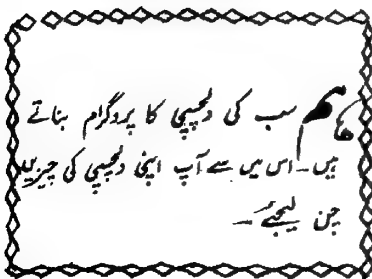 ہم سب کی دلچسپی کا پروگرام بناتے
ہیں۔ اس میں سے آپ اپنی دلچسپی کی چیزیں
چن لیجئے۔